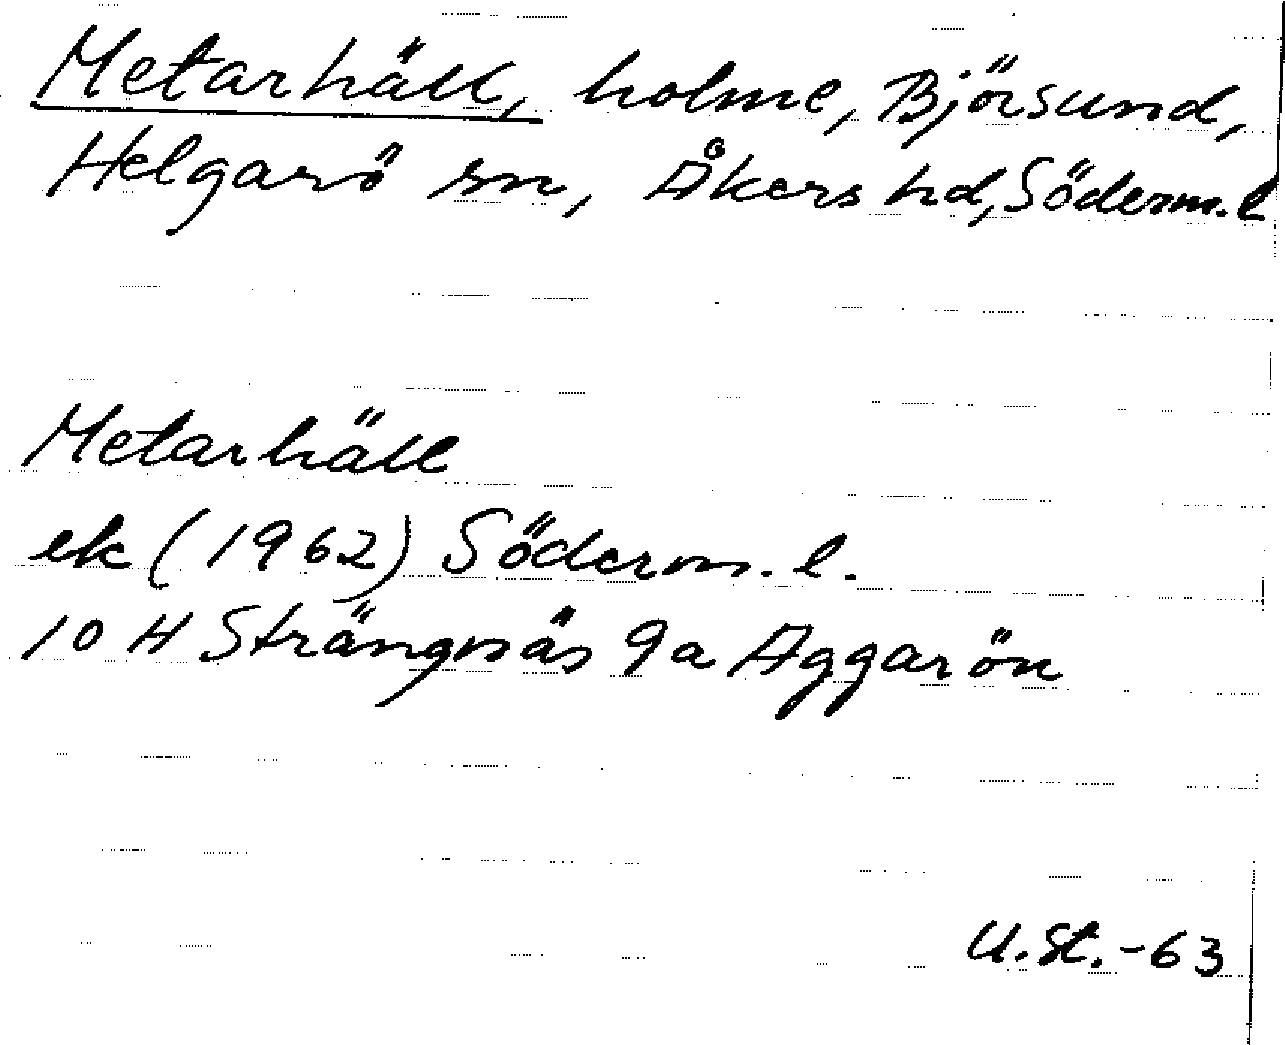 Metarhäll, holme, Björsund,
Helgarö sn, Åkers hd, Söderm. l
Metarhäll
ek (1962) Söderm. l.
10 H Strängnäs 9a Aggarön
U.St.-63